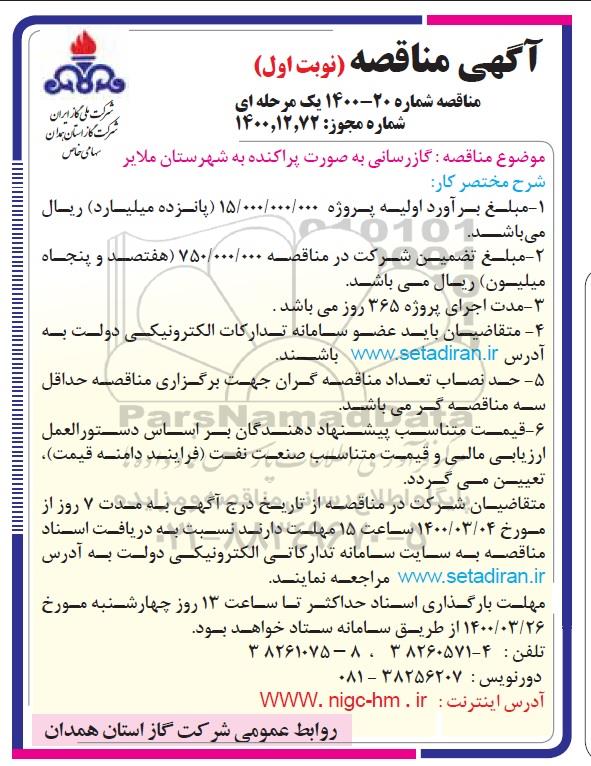 آگهی مناقصه (نوبت اول)
شرکت ملی گاز ایران
شرکت گاز استان همدان
سهامی خاص
مناقصه شماره ۲۰-۱۴۰۰ یک مرحله ای
شماره مجوز: ۱۴۰۰,۱۲,۷۲
موضوع مناقصه : گازرسانی به صورت پراکنده به شهرستان ملایر
شرح مختصر کار:
۱-مبلغ برآورد اولیه پروژه ۱۵/۰۰۰/۰۰۰/۰۰۰ (پانزده میلیارد) ریال
می‌باشد.
۲-مبلغ تضمین شرکت در مناقصه ۷۵۰/۰۰۰/۰۰۰ (هفتصد و پنجاه
میلیون) ریال می باشد.
۳-مدت اجرای پروژه ۳۶۵ روز می باشد .
۴- متقاضیان باید عضو سامانه تدارکات الکترونیکی دولت به
آدرس www.setadiran.ir باشند.
۵- حد نصاب تعداد مناقصه گران جهت برگزاری مناقصه حداقل
سه مناقصه گر می باشد.
۶-قیمت متناسب پیشنهاد دهندگان بر اساس دستورالعمل
ارزیابی مالی و قیمت متناسب صنعت نفت (فرایند دامنه قیمت)،
تعیین می گردد.
متقاضیان شرکت در مناقصه از تاریخ درج آگهی به مدت ۷ روز از
مورخ ۱۴۰۰/۰۳/۰۴ ساعت ۱۵ مهلت دارند نسبت به دریافت اسناد
مناقصه به سایت سامانه تدارکاتی الکترونیکی دولت به آدرس
www.setadiran.ir مراجعه نمایند.
مهلت بارگذاری اسناد حداکثر تا ساعت ۱۳ روز چهارشنبه مورخ
۱۴۰۰/۰۳/۲۶ از طریق سامانه ستاد خواهد بود.
تلفن : ۴-۳۸۲۶۰۵۷۱ , ۸ – ۳۸۲۶۱۰۷۵
دورنویس : ۳۸۲۵۶۲۰۷ - ۰۸۱
آدرس اینترنت : WWW. nigc-hm . ir
روابط عمومی شرکت گاز استان همدان
ParsNamadData
پایگاه اطلاع رسانی مناقصه و مزایده
۰۲۱-۸۸۳۴۹۶۷۰-۵